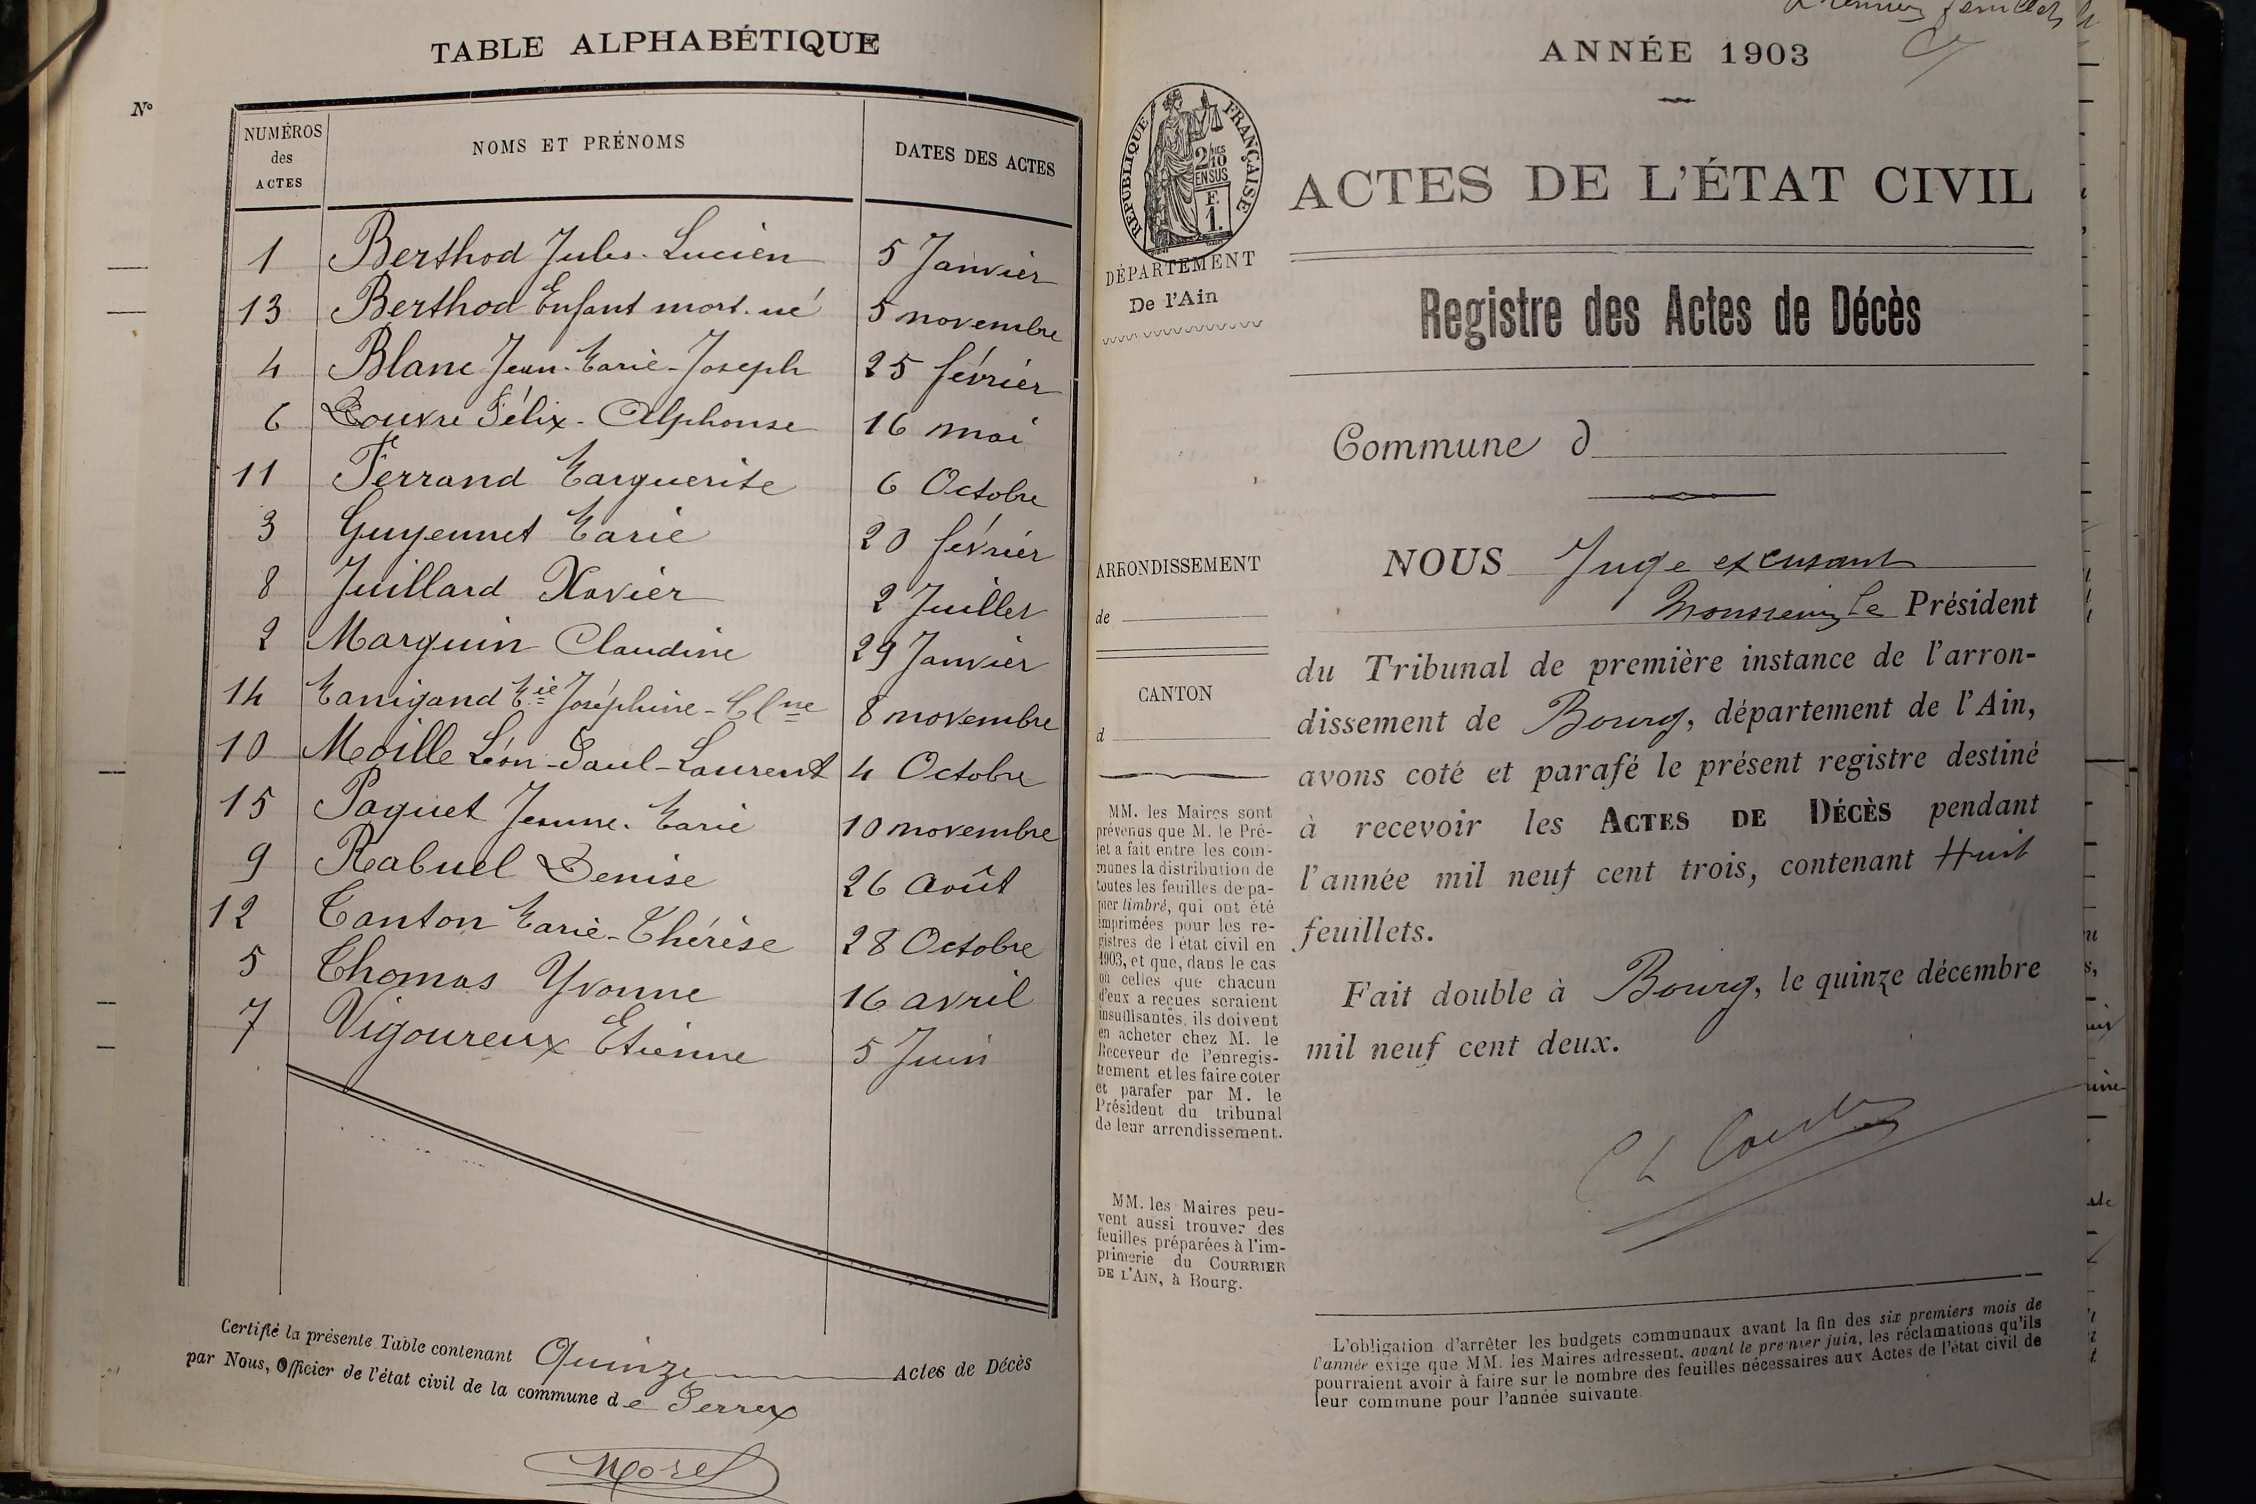 TABLE ALPHABÉTIQUE
Nº
NUMÉROS des ACTES NOMS ET PRÉNOMS DATES DES ACTES
1 Berthod Jules-Lucien 5 Janvier
13 Berthod Enfant mort-né 5 novembre
4 Blanc Jean-Marie-Joseph 25 février
6 Douvre Félix-Alphonse 16 mai
11 Ferrand Marguerite 6 Octobre
3 Guyennet Marie 20 février
8 Juillard Xavier 2 Juillet
2 Marguin Claudine 29 Janvier
14 Manigand Mie Joséphine-Clne 8 novembre
10 Moille Léon-Paul-Laurent 4 Octobre
15 Paquet Jeanne-Marie 10 novembre
9 Rabuel Denise 26 Août
12 Tanton Marie-Thérèse 28 Octobre
5 Thomas Yvonne 16 avril
7 Vigoureux Etienne 5 Juin
Certifié la présente Table contenant Quinze Actes de Décès
par Nous, Officier de l'état civil de la commune de Perrex
Morel
ANNÉE 1903
RÉPUBLIQUE FRANÇAISE
2/10 EN SUS
F. 1.
DÉPARTEMENT
De l'Ain
ARRONDISSEMENT
de
CANTON
d
MM. les Maires sont
prévenus que M. le Pré-
fet a fait entre les com-
munes la distribution de
toutes les feuilles de pa-
pier timbré, qui ont été
imprimées pour les re-
gistres de l'état civil en
1903, et que, dans le cas
où celles que chacun
d'eux a reçues seraient
insuffisantes, ils doivent
en acheter chez M. le
Receveur de l'enregis-
trement et les faire coter
et parafer par M. le
Président du tribunal
de leur arrondissement.
MM. les Maires peu-
vent aussi trouver des
feuilles préparées à l'im-
primerie du COURRIER
DE L'AIN, à Bourg.
ACTES DE L'ÉTAT CIVIL
Registre des Actes de Décès
Commune d
NOUS Juge excusant
Monsieur le Président
du Tribunal de première instance de l'arron-
dissement de Bourg, département de l'Ain,
avons coté et parafé le présent registre destiné
à recevoir les ACTES DE DÉCÈS pendant
l'année mil neuf cent trois, contenant Huit
feuillets.
Fait double à Bourg, le quinze décembre
mil neuf cent deux.
L'obligation d'arrêter les budgets communaux avant la fin des six premiers mois de
l'année exige que MM. les Maires adressent, avant le premier juin, les réclamations qu'ils
pourraient avoir à faire sur le nombre des feuilles nécessaires aux Actes de l'état civil de
leur commune pour l'année suivante.